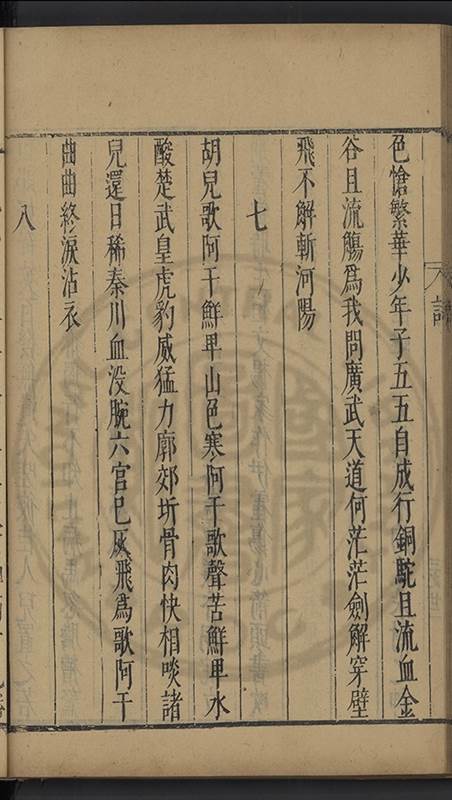 色愴繁華少年子五五自成行銅駝且流血金
谷且流觴爲我問廣武天道何茫茫劍解穿壁
飛不解斬河陽
七
胡兒歌阿干鮮卑山色寒阿干歌聲苦鮮卑水
酸楚武皇虎豹威猛力廓郊圻骨肉快相啖諸
兒還日稀秦川血没腕六宮已灰飛爲歌阿干
曲曲終淚沾衣
八